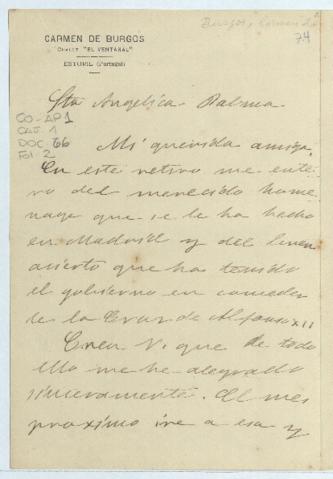 Burgos, Carmen de
74
CARMEN DE BURGOS
CHALET "EL VENTANAL"
ESTORIL (Portugal)
Sta Angelica Palma
CO-AP1
CAJ. 1
DOC. 66
FOL. 2
Mi querida amiga.
En este retiro me ente-
ro del merecido home
nage que se le ha hecho
en Madrid y del buen
acierto que ha tenido
el gobierno en conceder
le la Cruz de Alfonso XII
Crea V. que de todo
ello me he alegrado
sinceramente. El mes
proximo ire a esa y